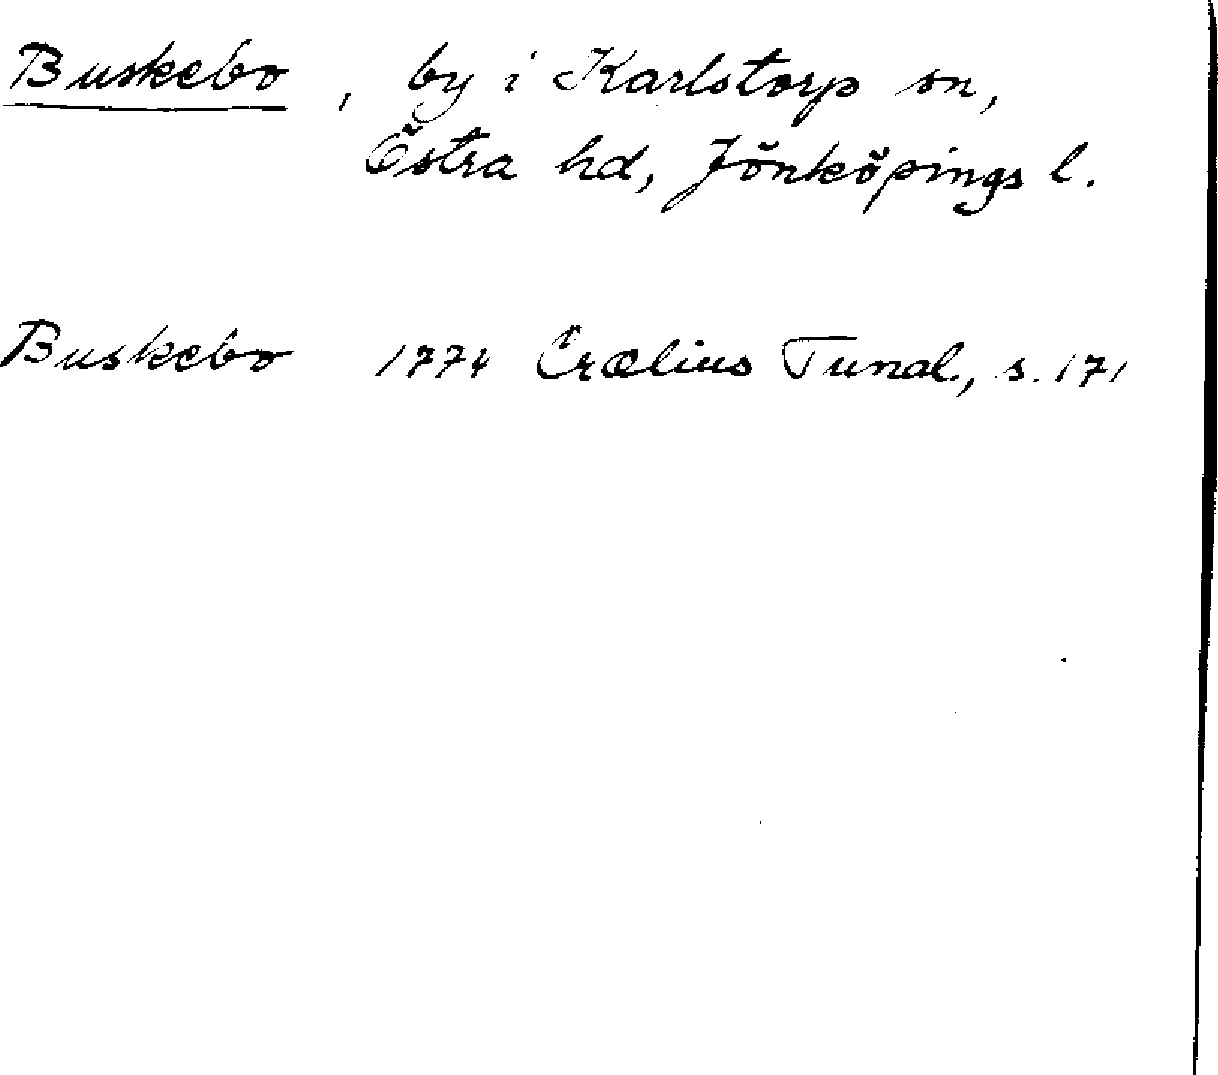 Buskebo, by i Karlstorp sn,
Östra hd, Jönköpings l.
Buskebo 1774 Crælius Tunal., s. 171